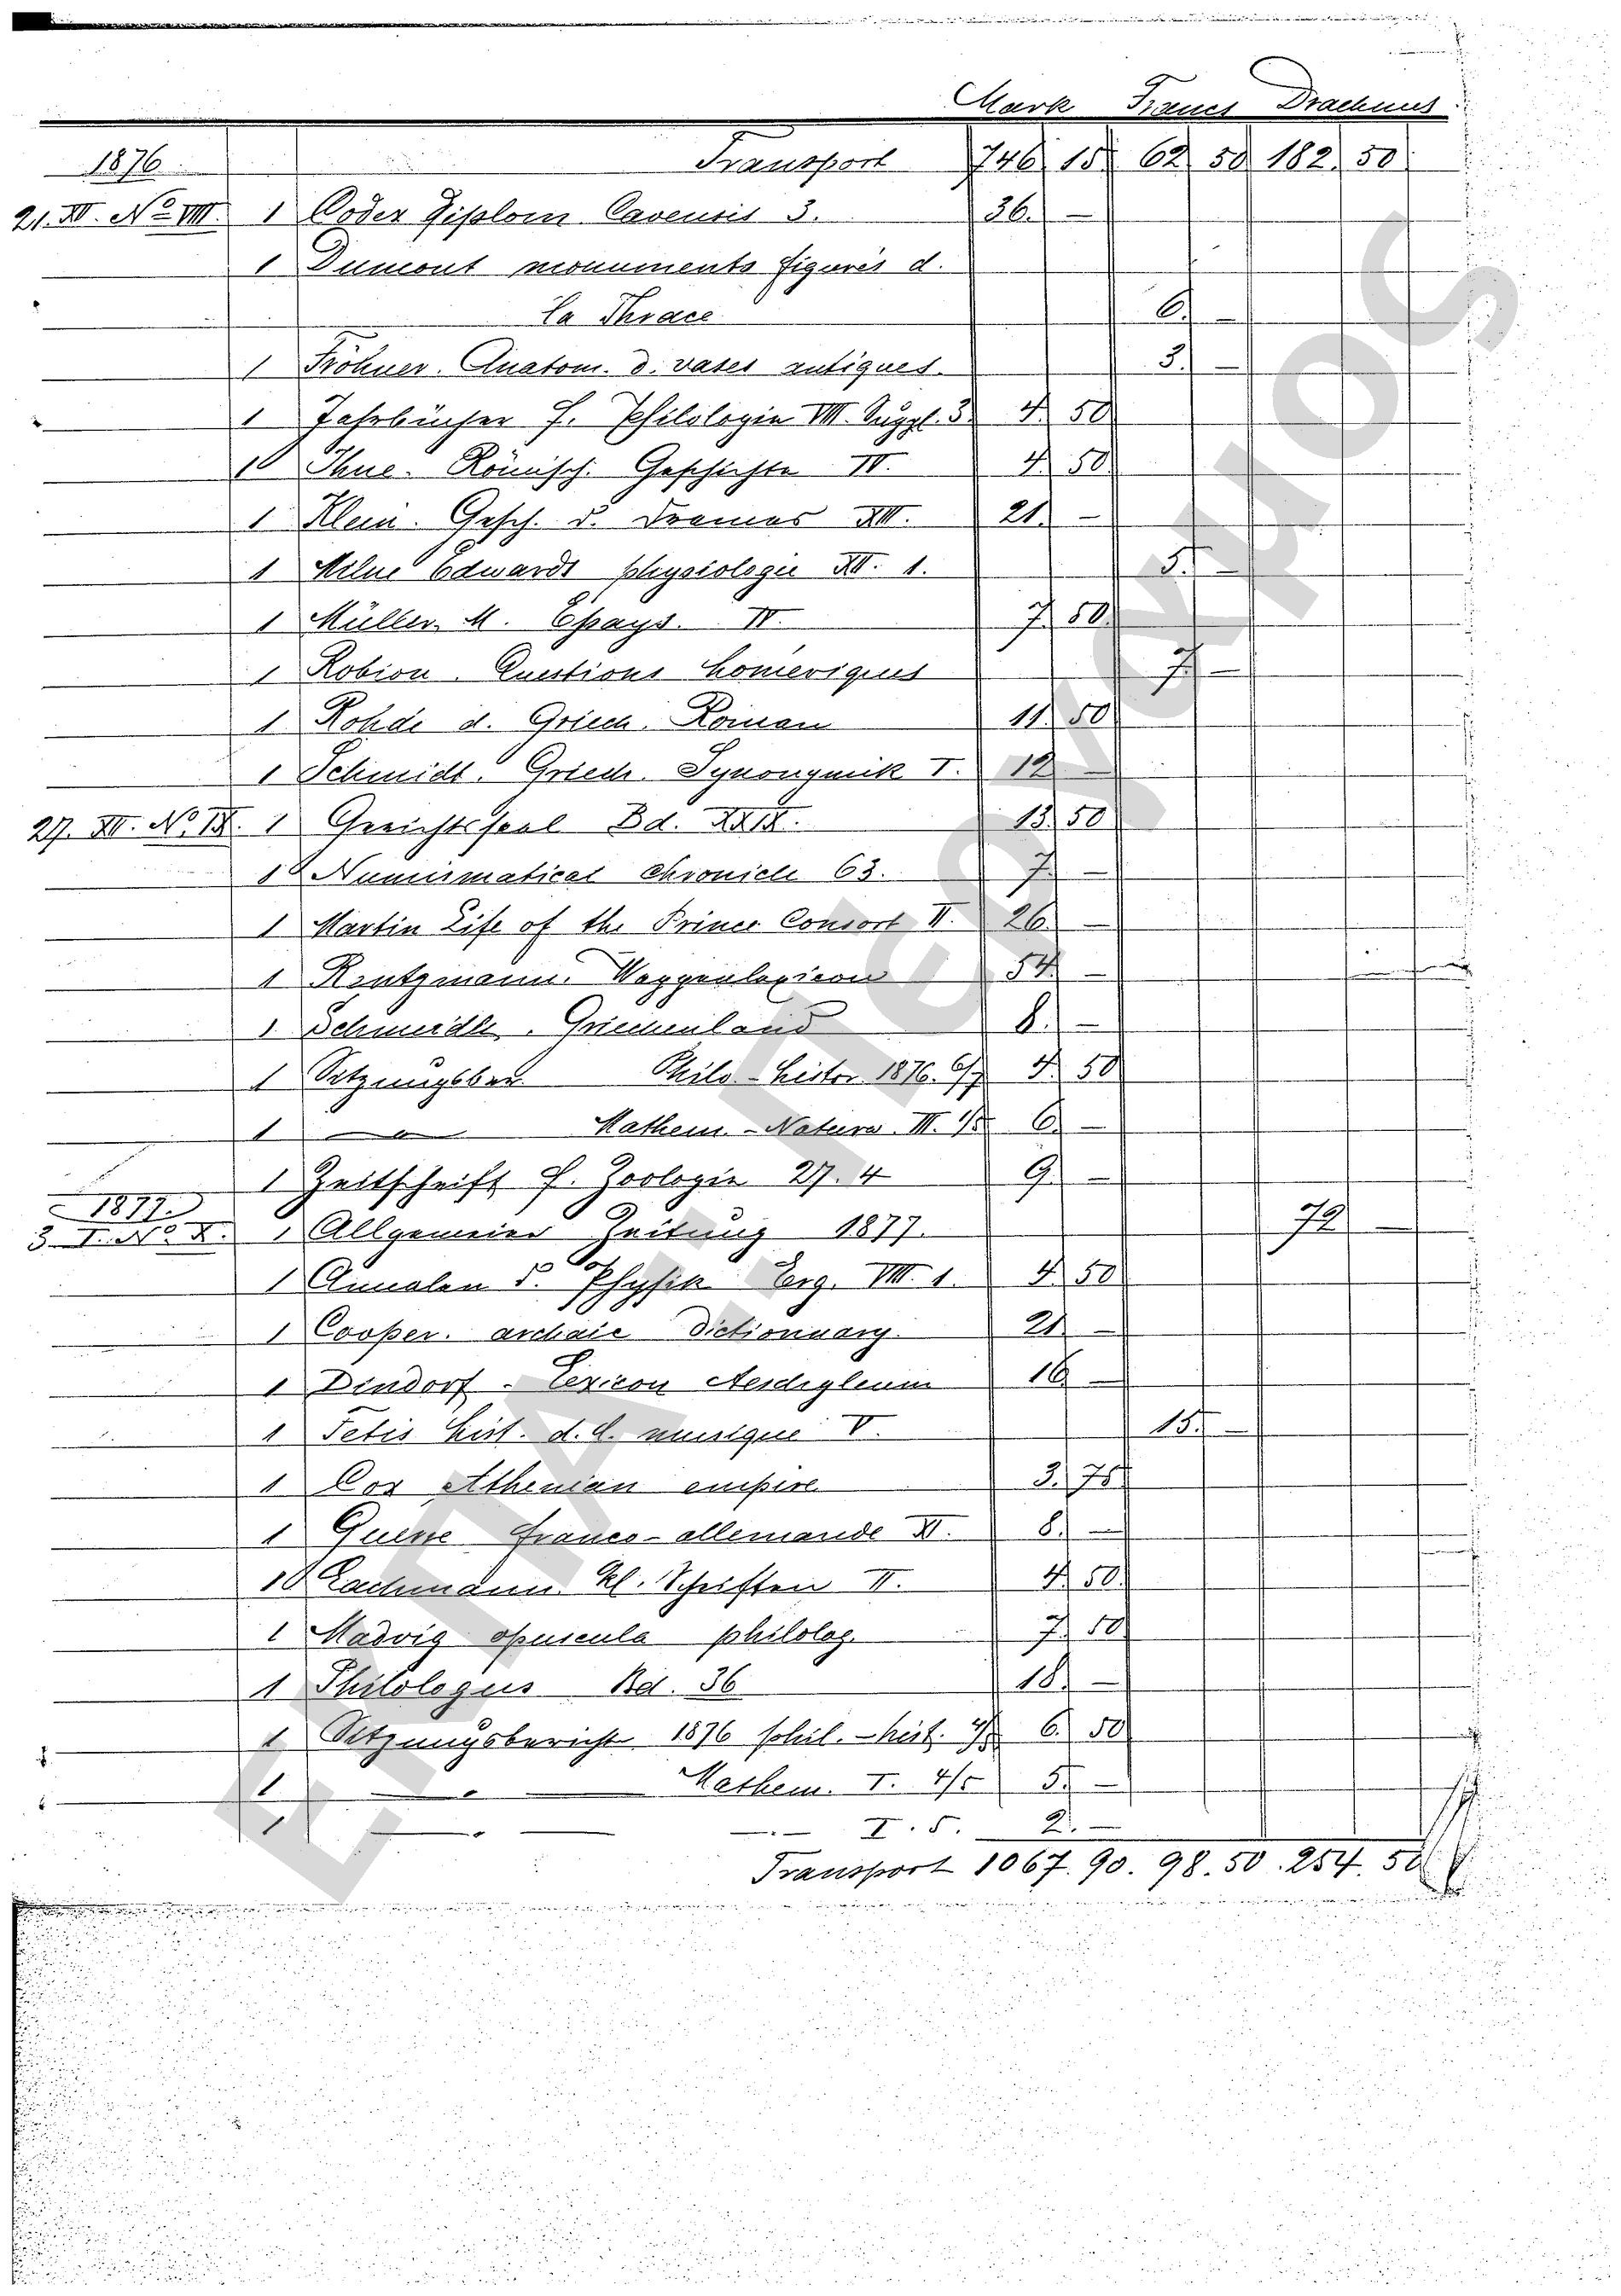 Mark Francs Drachmes
1876. Transport 746 15 62 50 182 50
21. XII. No VIII. 1 Codex diplom. Cavensis 3. 36. —
1 Dumont monuments figurés d.
la Thrace 6. —
1 Fröhner. Anatom. d. vases antiques. 3. —
1 Jahrbücher f. Philologie VIII. Suppl. 3. 4. 50
1 Ihne. Römisch. Geschichte IV. 4. 50
1 Klein. Gesch. d. Dramas XII. 21. —
1 Milne Edwards physiologie XII. 1. 5. —
1 Müller. M. Essays. IV. 7. 50.
1 Robiou. Questions homeriques 7. —
1 Rohde d. Griech. Roman 11. 50
1 Schmidt. Griech. Synonymik I. 12 —
27. XII. No. IX. 1 Gerichtssaal Bd. XXIX. 13. 50
1 Numismatical chronicle 63. 7. —
1 Martin Life of the Prince Consort II. 26. —
1 Rentzmann. Wappenlexicon 54. —
1 Schweidle. Griechenland 8. —
1 Sitzungsber. Philo.-histor. 1876. 6/7 4. 50
1 — " — Mathem.-Naturw. III. 1/5 6. —
1 Zeitschrift f. Zoologie 27. 4 9. —
1877.
3. I. No X. 1 Allgemeine Zeitung 1877. 72 —
1 Annalen d. Physik Erg. VIII. 1. 4. 50
1 Cooper. archaic Dictionnary. 21. —
1 Dindorf. Lexicon Aeschyleum 16 —
1 Fetis hist. d. l. musique V. 15. —
1 Cox Athenian empire 3. 75
1 Guerre franco-allemande XI. 8. —
1 Lachmann. kl. Schriften II. 4. 50.
1 Madvig opuscula philolog. 7. 50
1 Philologus Bd. 36 18. —
1 Sitzungsbericht 1876 phil.-hist. 6. 50
1 — " — Mathem. I. 4/5 5. —
1 — " — — . — I. 5. 2. —
Transport 1067. 90. 98. 50. 254. 50